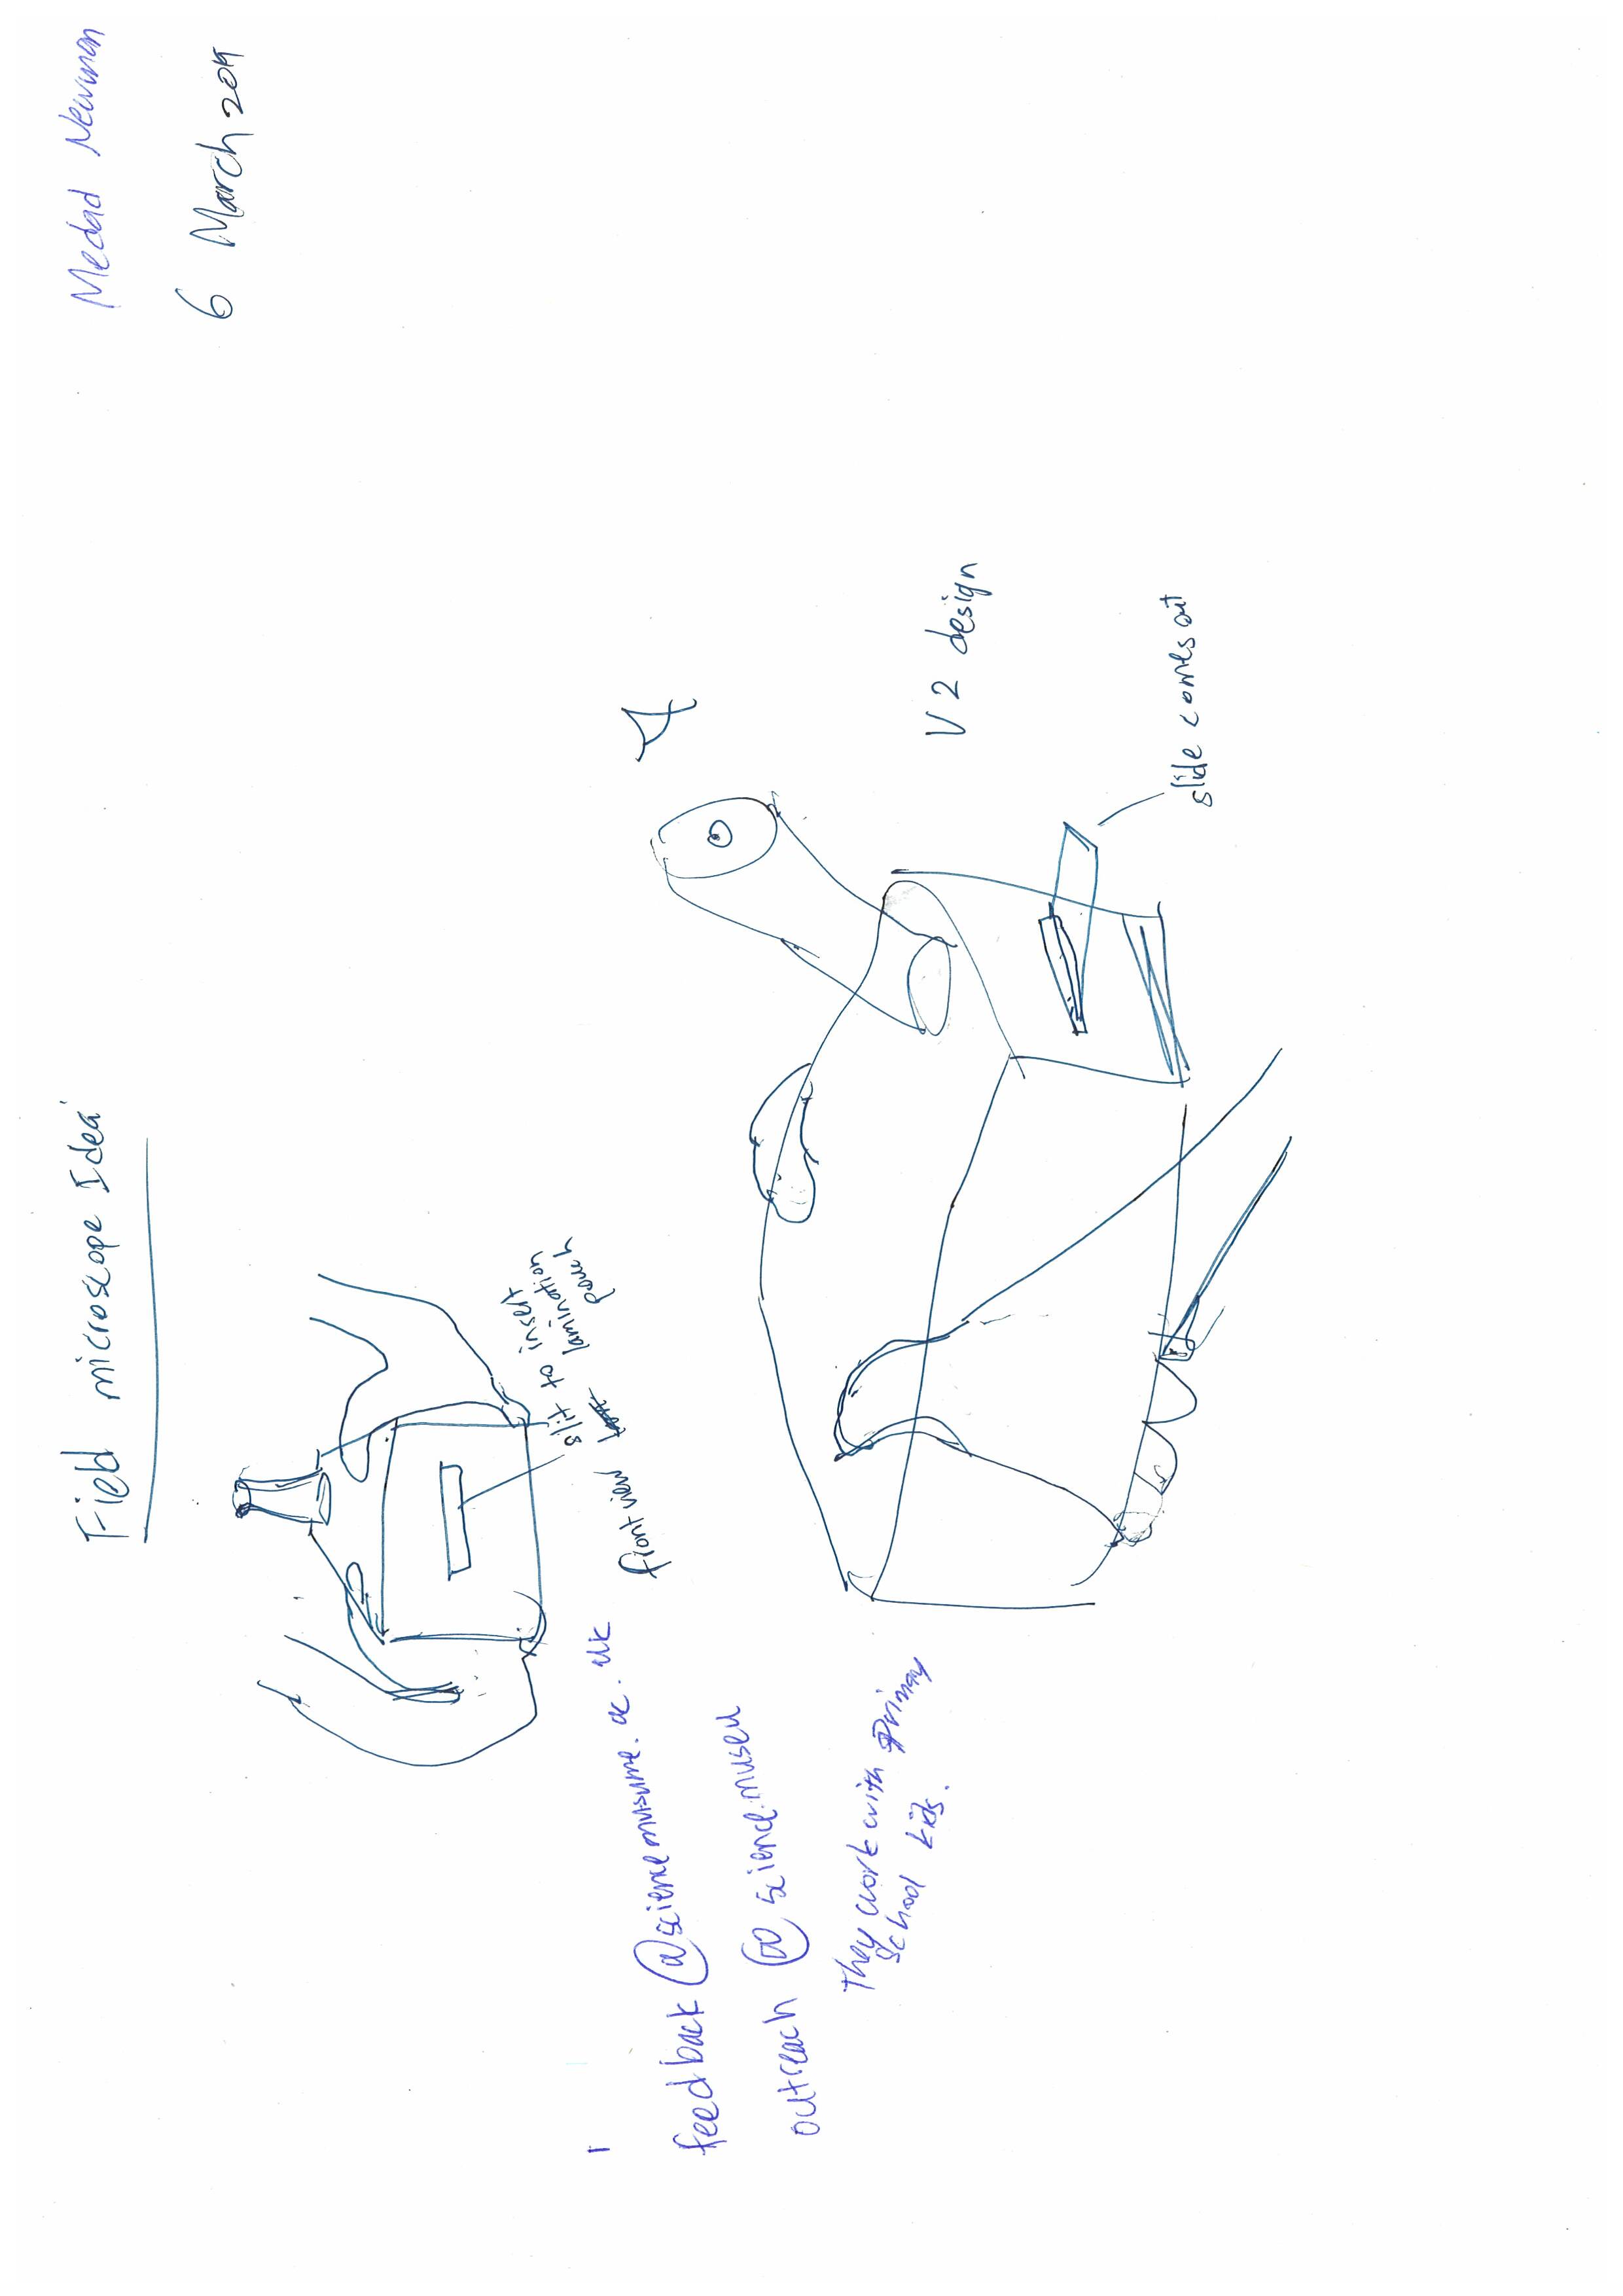 Field microscope Idea
Medad Newman
6 March 2019
slit to insert
lamination
pouch
front view
feedback@sciencemusume.ac.uk
outreach @ science.museu
They work with primary
school kids.
V2 design
slide comes out